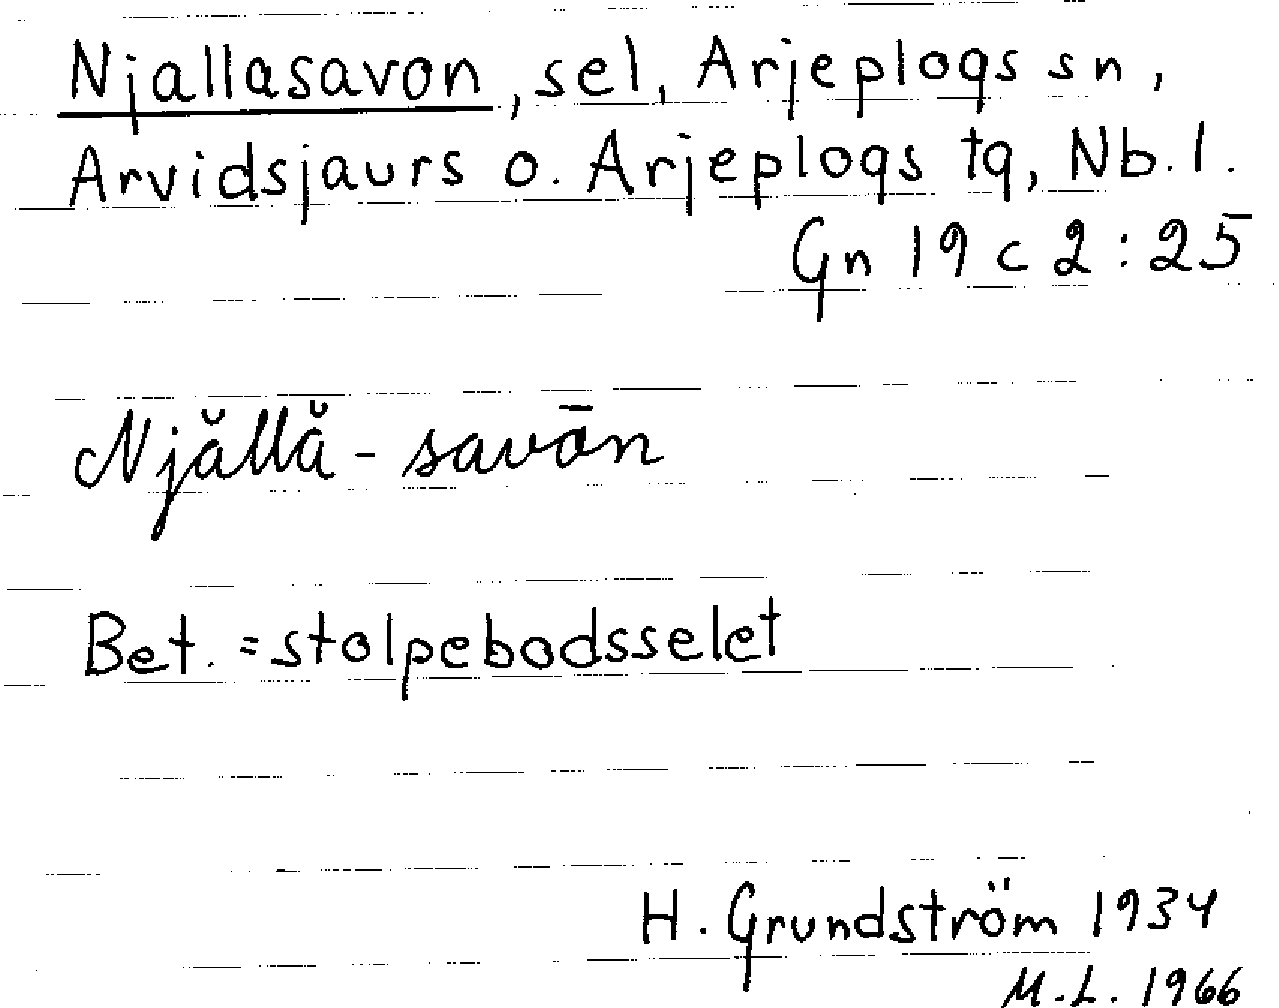 Njallasavon, sel, Arjeplogs sn,
Arvidsjaurs o. Arjeplogs tg, Nb. l.
Gn 19 c 2 : 25
Njållå̆ - savōn
Bet. = stolpebodsselet
H. Grundström 1934
M.L. 1966